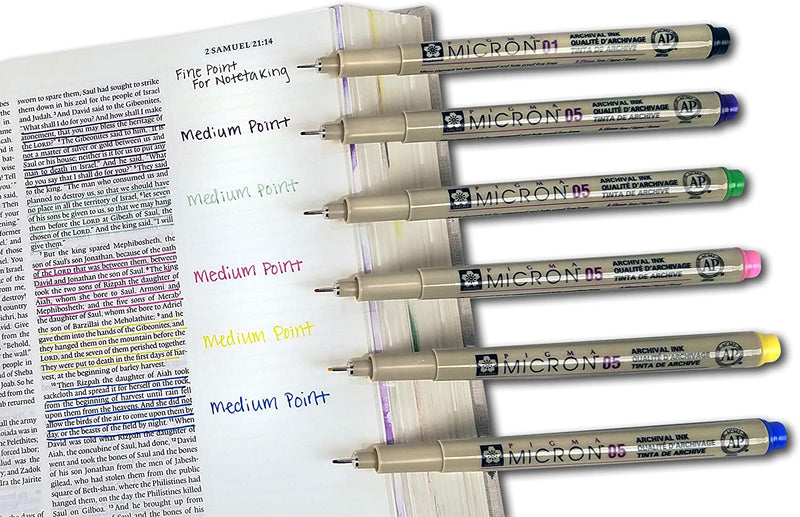 2 SAMUEL 21:14
sworn to spare them, Saul had sought to strike
them down in his zeal for the people of Israel
and Judah. 3 And David said to the Gibeonites,
"What shall I do for you? And how shall I make
atonement, that you may bless the heritage of
the LORD?" 4 The Gibeonites said to him, "It is
not a matter of silver or gold between us and
Saul or his house; neither is it for us to put any
man to death in Israel." And he said, "What
do you say that I shall do for you?" 5 They said
to the king, "The man who consumed us and
planned to destroy us, so that we should have
no place in all the territory of Israel, 6 let seven
of his sons be given to us, so that we may hang
them before the LORD at Gibeah of Saul, the
chosen of the LORD." And the king said, "I will
give them."
7 But the king spared Mephibosheth, the
son of Saul's son Jonathan, because of the oath
of the LORD that was between them, between
David and Jonathan the son of Saul. 8 The king
took the two sons of Rizpah the daughter of
Aiah, whom she bore to Saul, Armoni and
Mephibosheth; and the five sons of Merab
daughter of Saul, whom she bore to Adriel
the son of Barzillai the Meholathite; 9 and he
gave them into the hands of the Gibeonites, and
they hanged them on the mountain before the
LORD, and the seven of them perished together.
They were put to death in the first days of har-
vest, at the beginning of barley harvest.
10 Then Rizpah the daughter of Aiah took
sackcloth and spread it for herself on the rock,
from the beginning of harvest until rain fell
upon them from the heavens. And she did not
allow the birds of the air to come upon them by
day, or the beasts of the field by night. 11 When
David was told what Rizpah the daughter of
Aiah, the concubine of Saul, had done, 12 David
went and took the bones of Saul and the bones
of his son Jonathan from the men of Jabesh-
gilead, who had stolen them from the public
square of Beth-shan, where the Philistines had
hanged them, on the day the Philistines killed
Saul on Gilboa. 13 And he brought up from
there the bones of Saul and the bones of his
Fine Point
For Notetaking
Medium Point
Medium Point
Medium Point
Medium Point
Medium Point
MICRON 01
ARCHIVAL INK
QUALITÉ D'ARCHIVAGE
TINTA DE ARCHIVE
AP
PIGMA
MICRON 05
ARCHIVAL INK
QUALITÉ D'ARCHIVAGE
TINTA DE ARCHIVE
AP
PIGMA
MICRON 05
ARCHIVAL INK
QUALITÉ D'ARCHIVAGE
TINTA DE ARCHIVE
AP
PIGMA
MICRON 05
ARCHIVAL INK
QUALITÉ D'ARCHIVAGE
TINTA DE ARCHIVE
AP
PIGMA
MICRON 05
ARCHIVAL INK
QUALITÉ D'ARCHIVAGE
TINTA DE ARCHIVE
AP
PIGMA
MICRON 05
ARCHIVAL INK
QUALITÉ D'ARCHIVAGE
TINTA DE ARCHIVE
AP